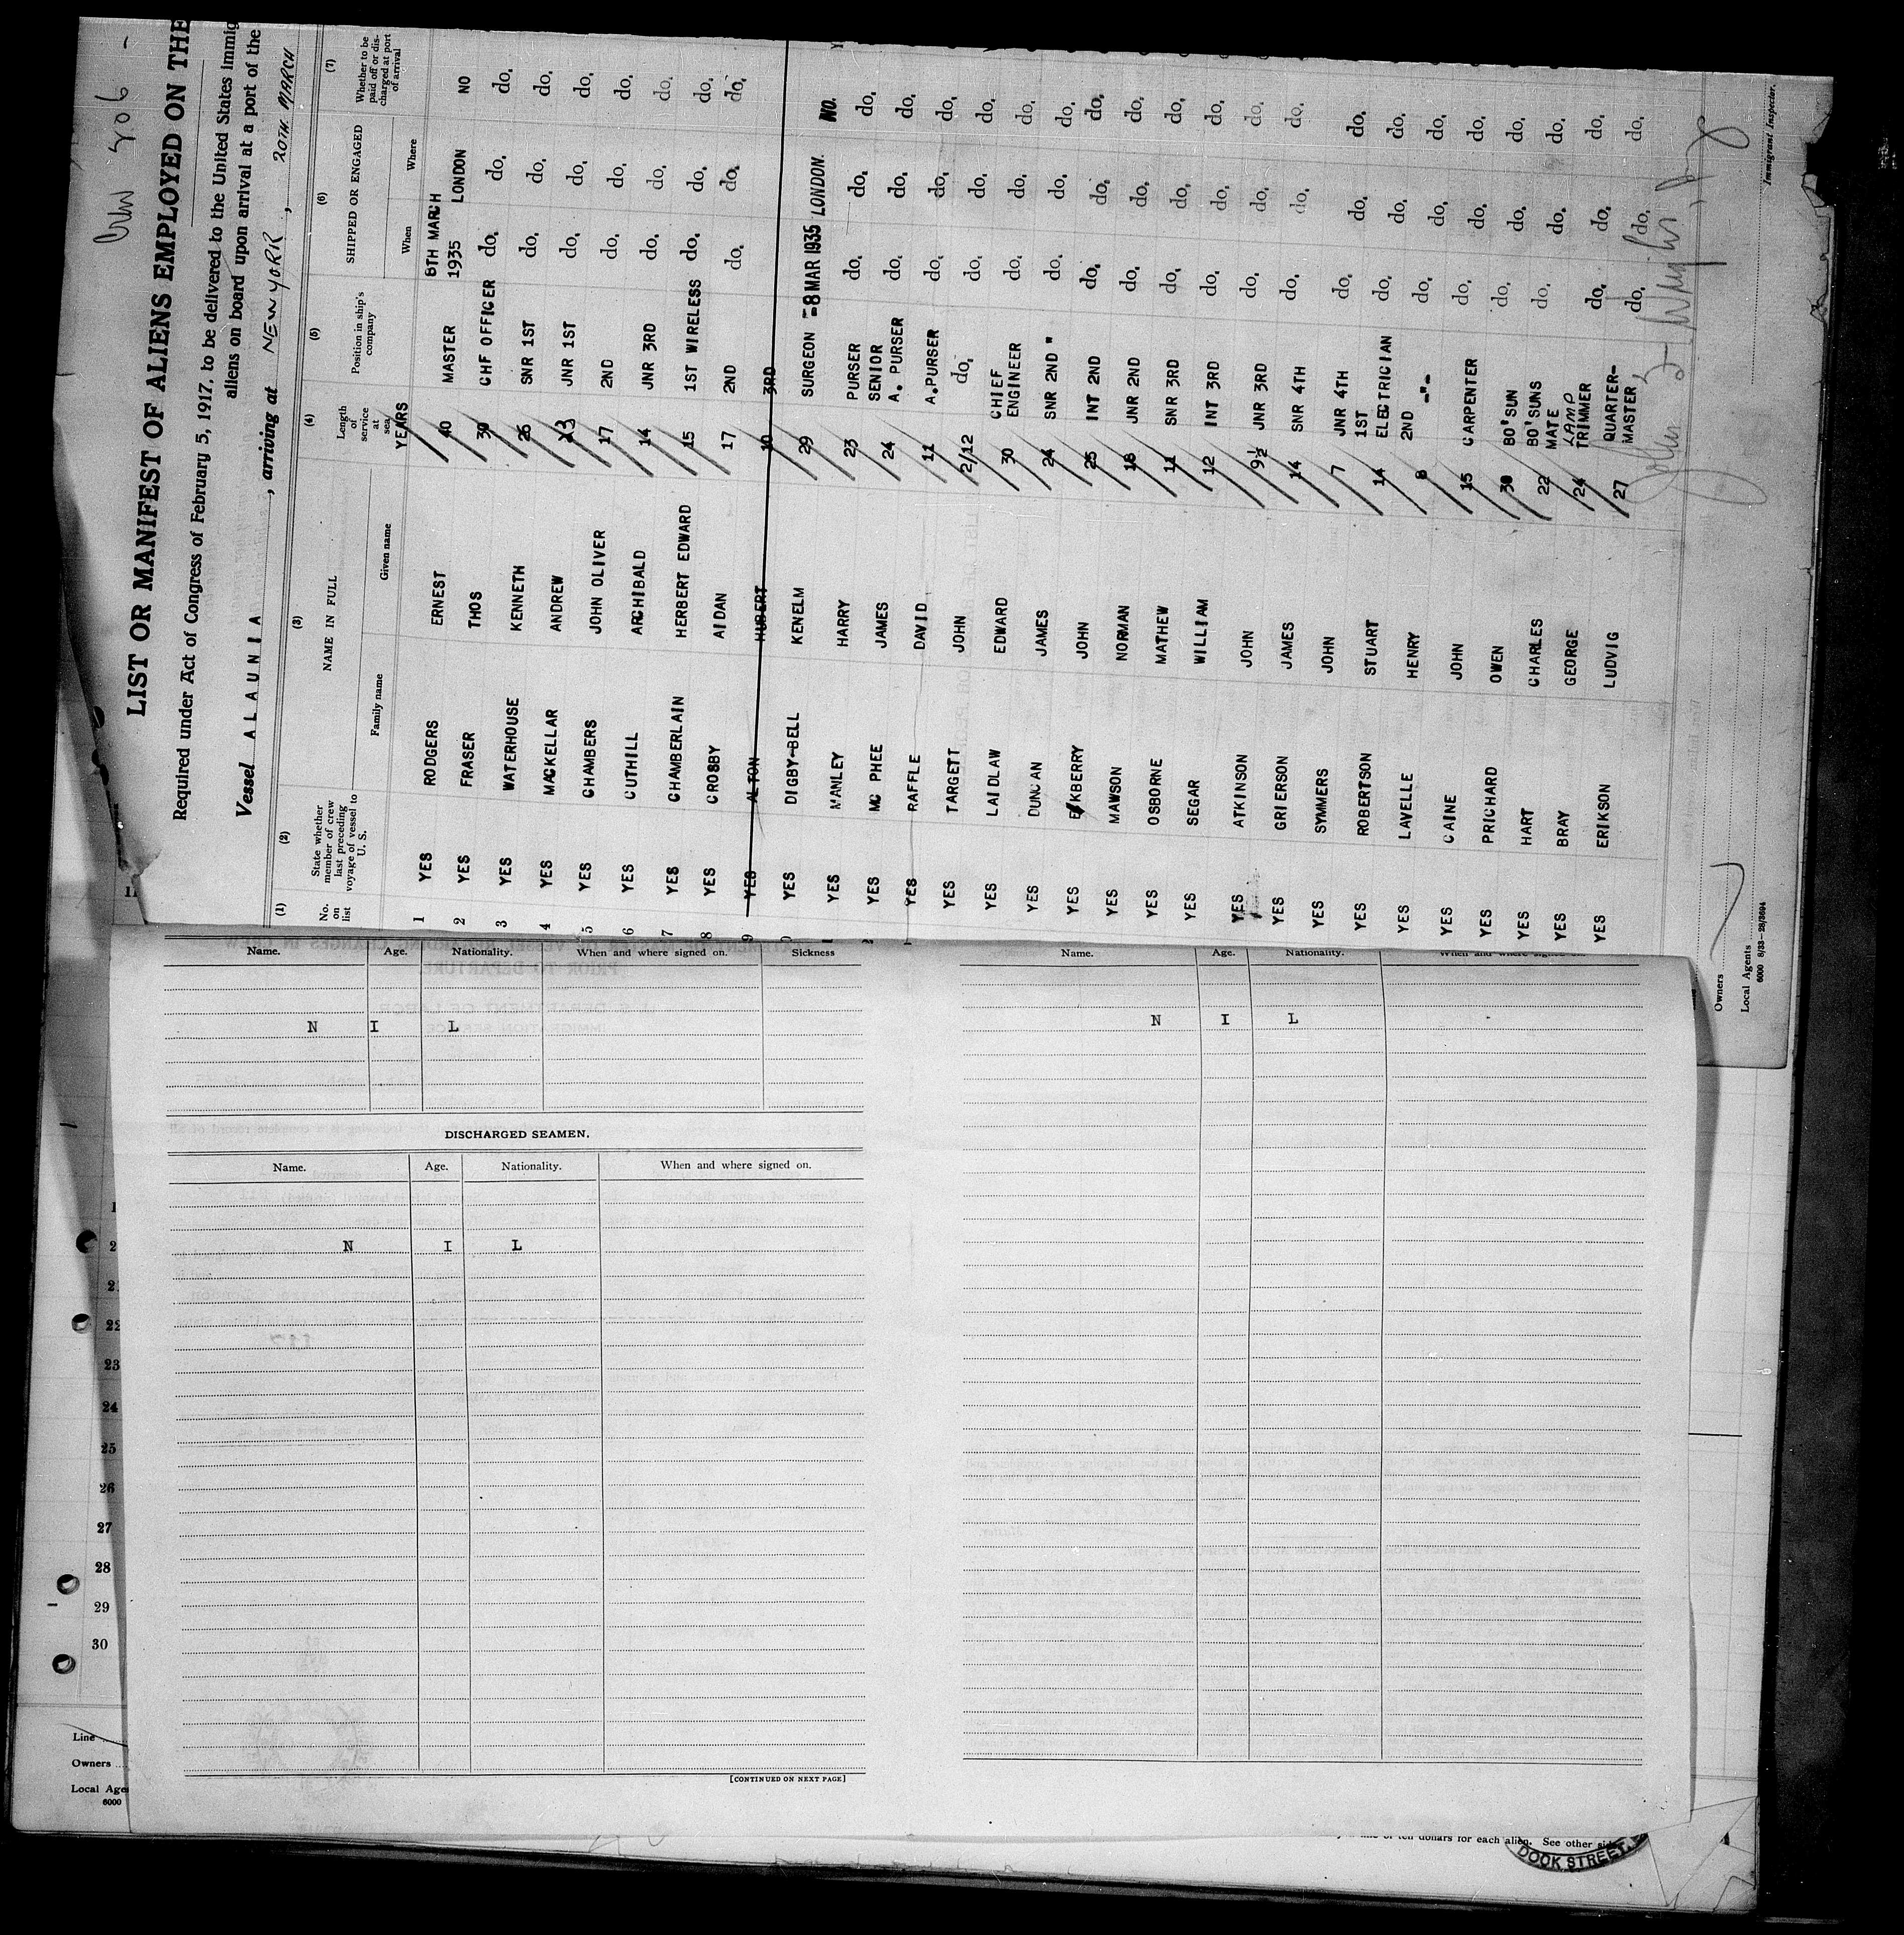 LIST OR MANIFEST OF ALIENS EMPLOYED ON THE
Required under Act of Congress of February 5, 1917, to be delivered to the United States immig
aliens on board upon arrival at a port of the
Vessel ALAUNIA, arriving at NEW YORK, 20TH. MARCH
(1) (2) (3) (4) (5) (6) (7)
No. on list
State whether member of crew last preceding voyage of vessel to U. S.
NAME IN FULL
Family name Given name
Length of service at sea
Position in ship's company
SHIPPED OR ENGAGED
When Where
Whether to be paid off or discharged at port of arrival
YEARS
1 YES RODGERS ERNEST 40 MASTER 8TH MARCH 1935 LONDON NO
2 YES FRASER THOS 30 CHF OFFICER do. do. do.
3 YES WATERHOUSE KENNETH 26 SNR 1ST do. do. do.
4 YES MACKELLAR ANDREW 23 JNR 1ST do. do. do.
5 YES CHAMBERS JOHN OLIVER 17 2ND do. do. do.
6 YES CUTHILL ARCHIBALD 14 JNR 3RD do. do. do.
7 YES CHAMBERLAIN HERBERT EDWARD 15 1ST WIRELESS do. do. do.
8 YES CROSBY AIDAN 17 2ND do. do. do.
9 YES ALTON HUBERT 10 3RD
YES DIGBY-BELL KENELM 29 SURGEON -8 MAR 1935 LONDON. NO.
YES MANLEY HARRY 23 PURSER do. do. do.
YES MC PHEE JAMES 24 SENIOR A. PURSER do. do. do.
YES RAFFLE DAVID 11 A.PURSER do. do. do.
YES TARGETT JOHN 2/12 do. do. do. do.
YES LAIDLAW EDWARD 30 CHIEF ENGINEER do. do. do.
YES DUNCAN JAMES 24 SNR 2ND " do. do. do.
YES EKBERRY JOHN 25 INT 2ND do. do. do.
YES MAWSON NORMAN 18 JNR 2ND do. do. do.
YES OSBORNE MATHEW 11 SNR 3RD do. do. do.
YES SEGAR WILLIAM 12 INT 3RD do. do. do.
YES ATKINSON JOHN 9½ JNR 3RD do. do. do.
YES GRIERSON JAMES 14 SNR 4TH do. do. do.
YES SYMMERS JOHN 7 JNR 4TH do. do. do.
YES ROBERTSON STUART 14 1ST ELECTRICIAN do. do. do.
YES LAVELLE HENRY 8 2ND -"- do. do. do.
YES CAINE JOHN 15 CARPENTER do. do. do.
YES PRICHARD OWEN 30 BO'SUN do. do. do.
YES HART CHARLES 22 BO'SUNS MATE do. do. do.
YES BRAY GEORGE 24 LAMP TRIMMER do. do. do.
YES ERIKSON LUDVIG 27 QUARTER-MASTER do. do. do.
Immigrant Inspector.
Owners
Local Agents
6000 8/33—28/3694
Name. Age. Nationality. When and where signed on. Sickness
N I L
DISCHARGED SEAMEN.
Name. Age. Nationality. When and where signed on.
N I L
[CONTINUED ON NEXT PAGE]
Name. Age. Nationality. When and where signed on.
N I L
2
21
22
23
24
25
26
27
28
29
30
Line
Owners
Local Age
6000
ten dollars for each alien. See other sid
DOCK STREET